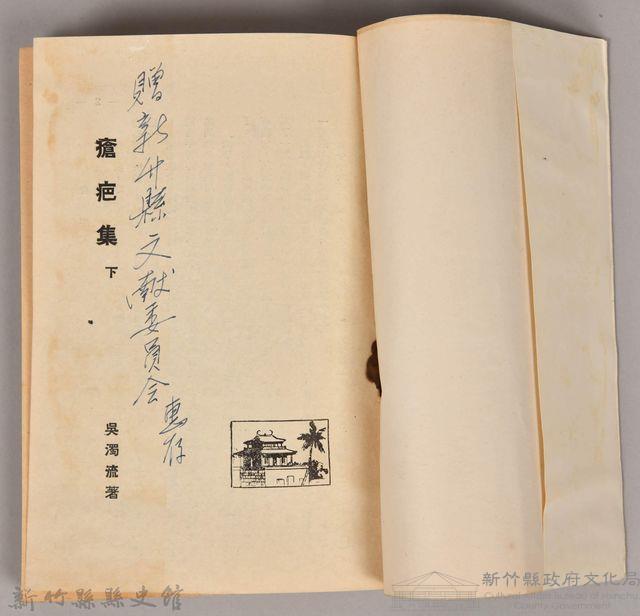 贈新竹縣文献委員会惠存
瘡疤集 下
吳濁流著
新竹縣縣史館
新竹縣政府文化局
Cultural Affairs Bureau of Hsinchu County Government